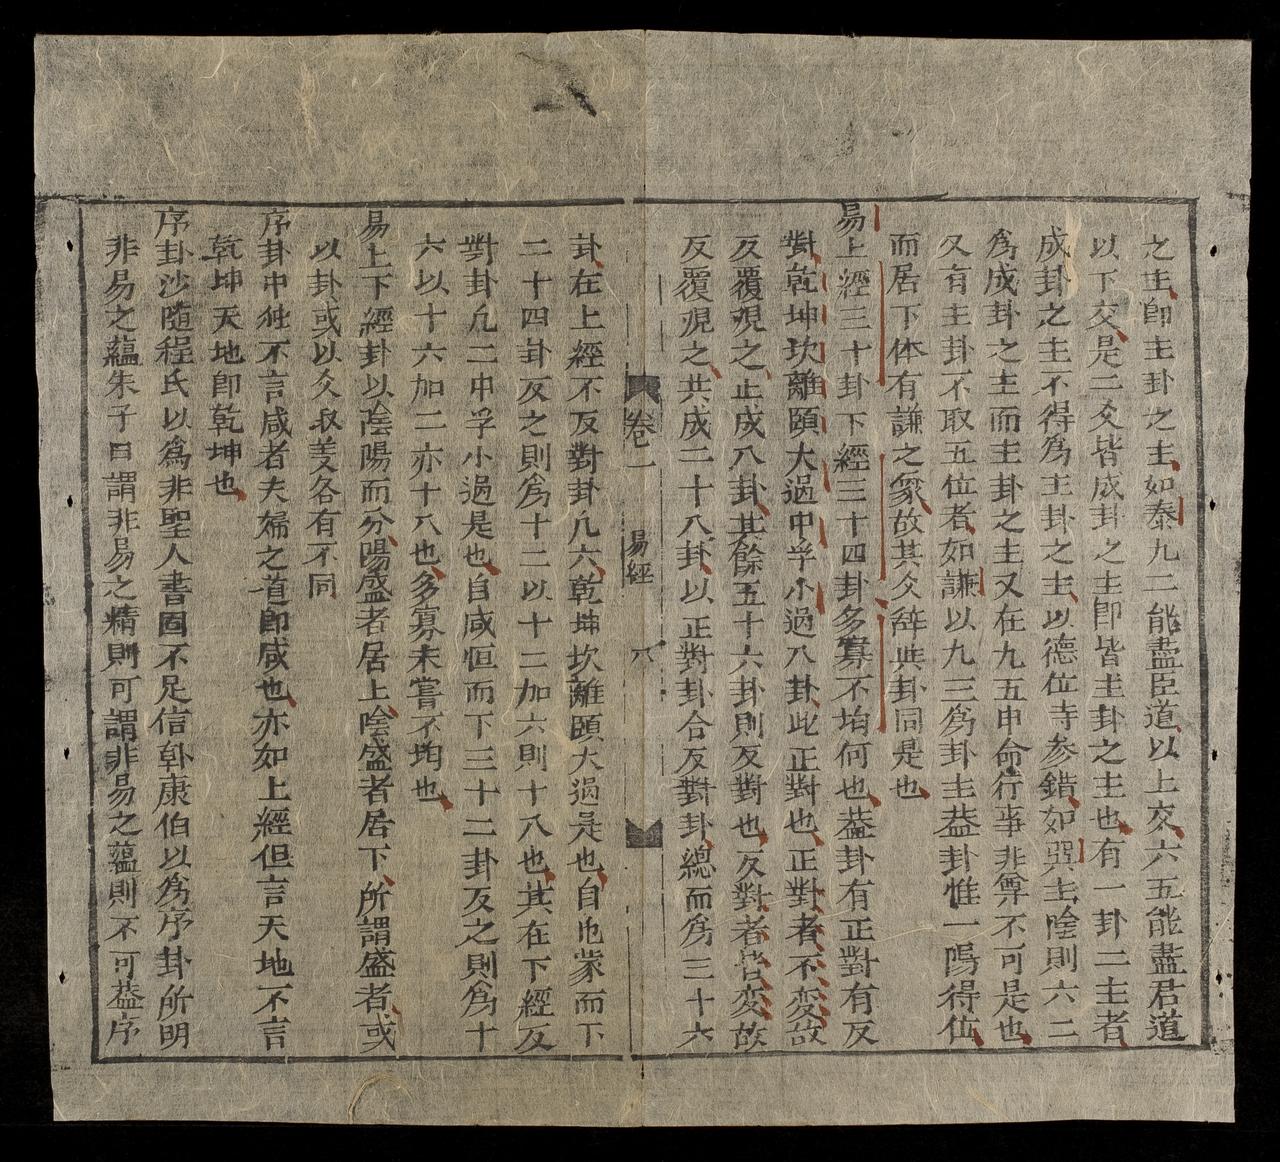 之主即主卦之主如泰九二能盡臣道以上交六五能盡君道
以下交是二爻皆成卦之主即皆主卦之主也有一卦二主者
成卦之主不得爲主卦之主以德位寺参錯如巽主陰則六二
爲成卦之主而主卦之主又在九五申命行事非尊不可是也
又有主卦不取五位者如謙以九三爲卦主葢卦惟一陽得位
而居下体有謙之象故其爻辞與卦同是也
易上經三十卦下經三十四卦多寡不均何也葢卦有正對有反
對乾坤坎離頤大過中孚小過八卦此正對也正對者不変故
反覆視之止成八卦其餘五十六卦則反對也反對者皆変故
反覆視之共成二十八卦以正對卦合反對卦總而爲三十六
卷一 易經 八
卦在上經不反對卦凡六乾坤坎離頤大過是也自屯蒙而下
二十四卦反之則爲十二以十二加六則十八也其在下經反
對卦凡二中孚小過是也自咸恒而下三十二卦反之則爲十
六以十六加二亦十八也多寡未嘗不均也
易上下經卦以陰陽而分陽盛者居上陰盛者居下所謂盛者或
以卦或以爻取義各有不同
序卦中独不言咸者夫婦之道即咸也亦如上經但言天地不言
乾坤天地即乾坤也
序卦沙隨程氏以爲非聖人書固不足信韓康伯以爲序卦所明
非易之蘊朱子曰謂非易之精則可謂非易之蘊則不可葢序